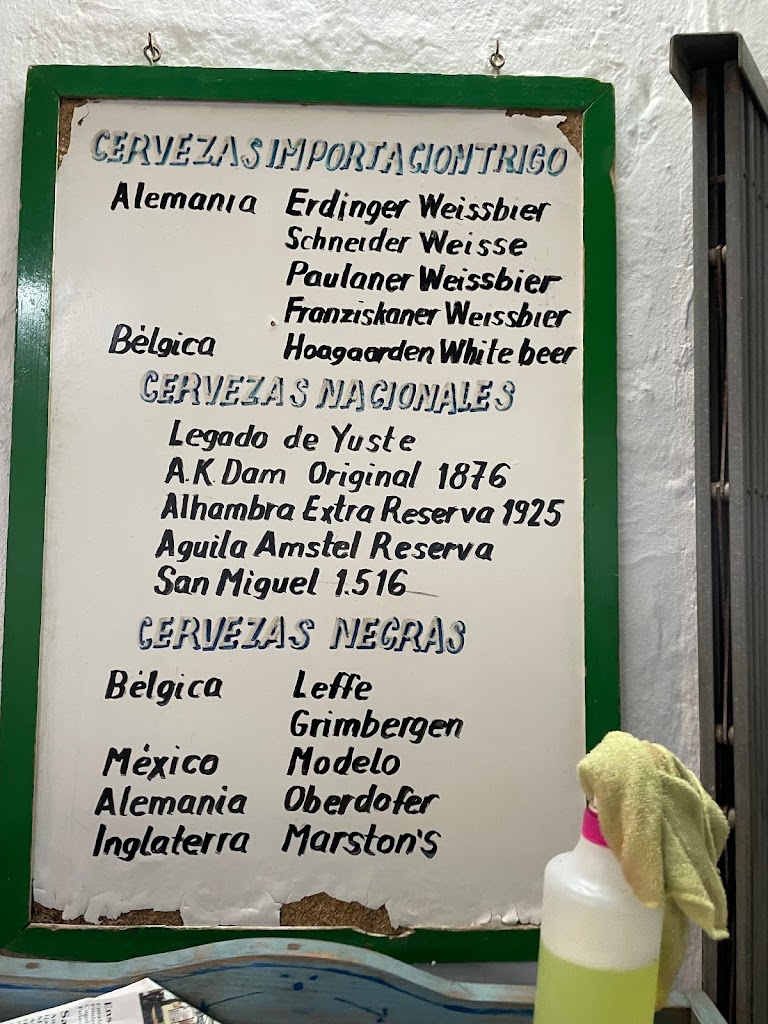 CERVEZAS IMPORTACION TRIGO
Alemania Erdinger Weissbier
Schneider Weisse
Paulaner Weissbier
Franziskaner Weissbier
Bélgica Hoagaarden White beer
CERVEZAS NACIONALES
Legado de Yuste
A.K. Dam Original 1876
Alhambra Extra Reserva 1925
Aguila Amstel Reserva
San Miguel 1.516
CERVEZAS NEGRAS
Bélgica Leffe
Grimbergen
México Modelo
Alemania Oberdofer
Inglaterra Marston's